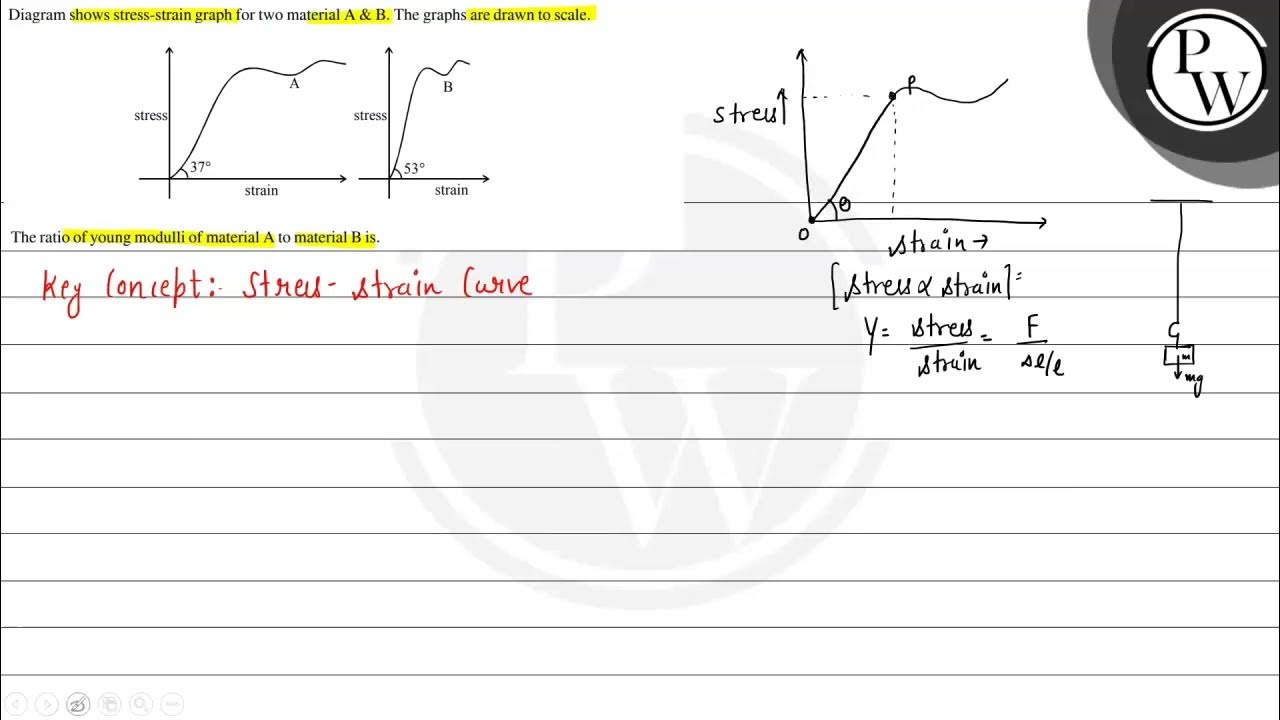 Diagram shows stress-strain graph for two material A & B. The graphs are drawn to scale.
stress
A
37°
strain
stress
B
53°
strain
The ratio of young modulli of material A to material B is.
Key Concept:- Stress-strain Curve
stress↑
P
θ
O
strain →
[stress ∝ strain]:
Y = stress/strain = F/sl/l
m
mg
P
W
PW